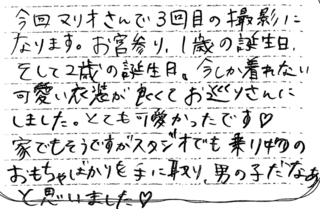 今回マリオさんで3回目の撮影に
なります。お宮参り、1歳の誕生日、
そして2歳の誕生日。今しか着れない
可愛い衣装が良くてお巡りさんに
しました。とても可愛かったです♡
家でもそうですがスタジオでも乗り物の
おもちゃばかりを手に取り、男の子だなぁ
と思いました♡